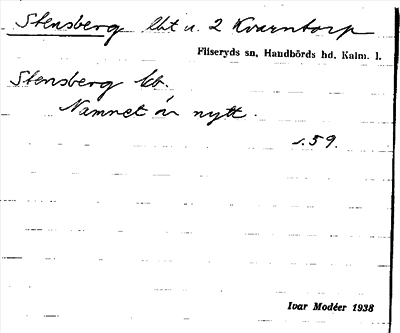 Stensberg lht u. 2 Kvarntorp
Fliseryds sn, Handbörds hd, Kalm. l.
Stensberg kb.
Namnet är nytt.
s. 59.
Ivar Modéer 1938